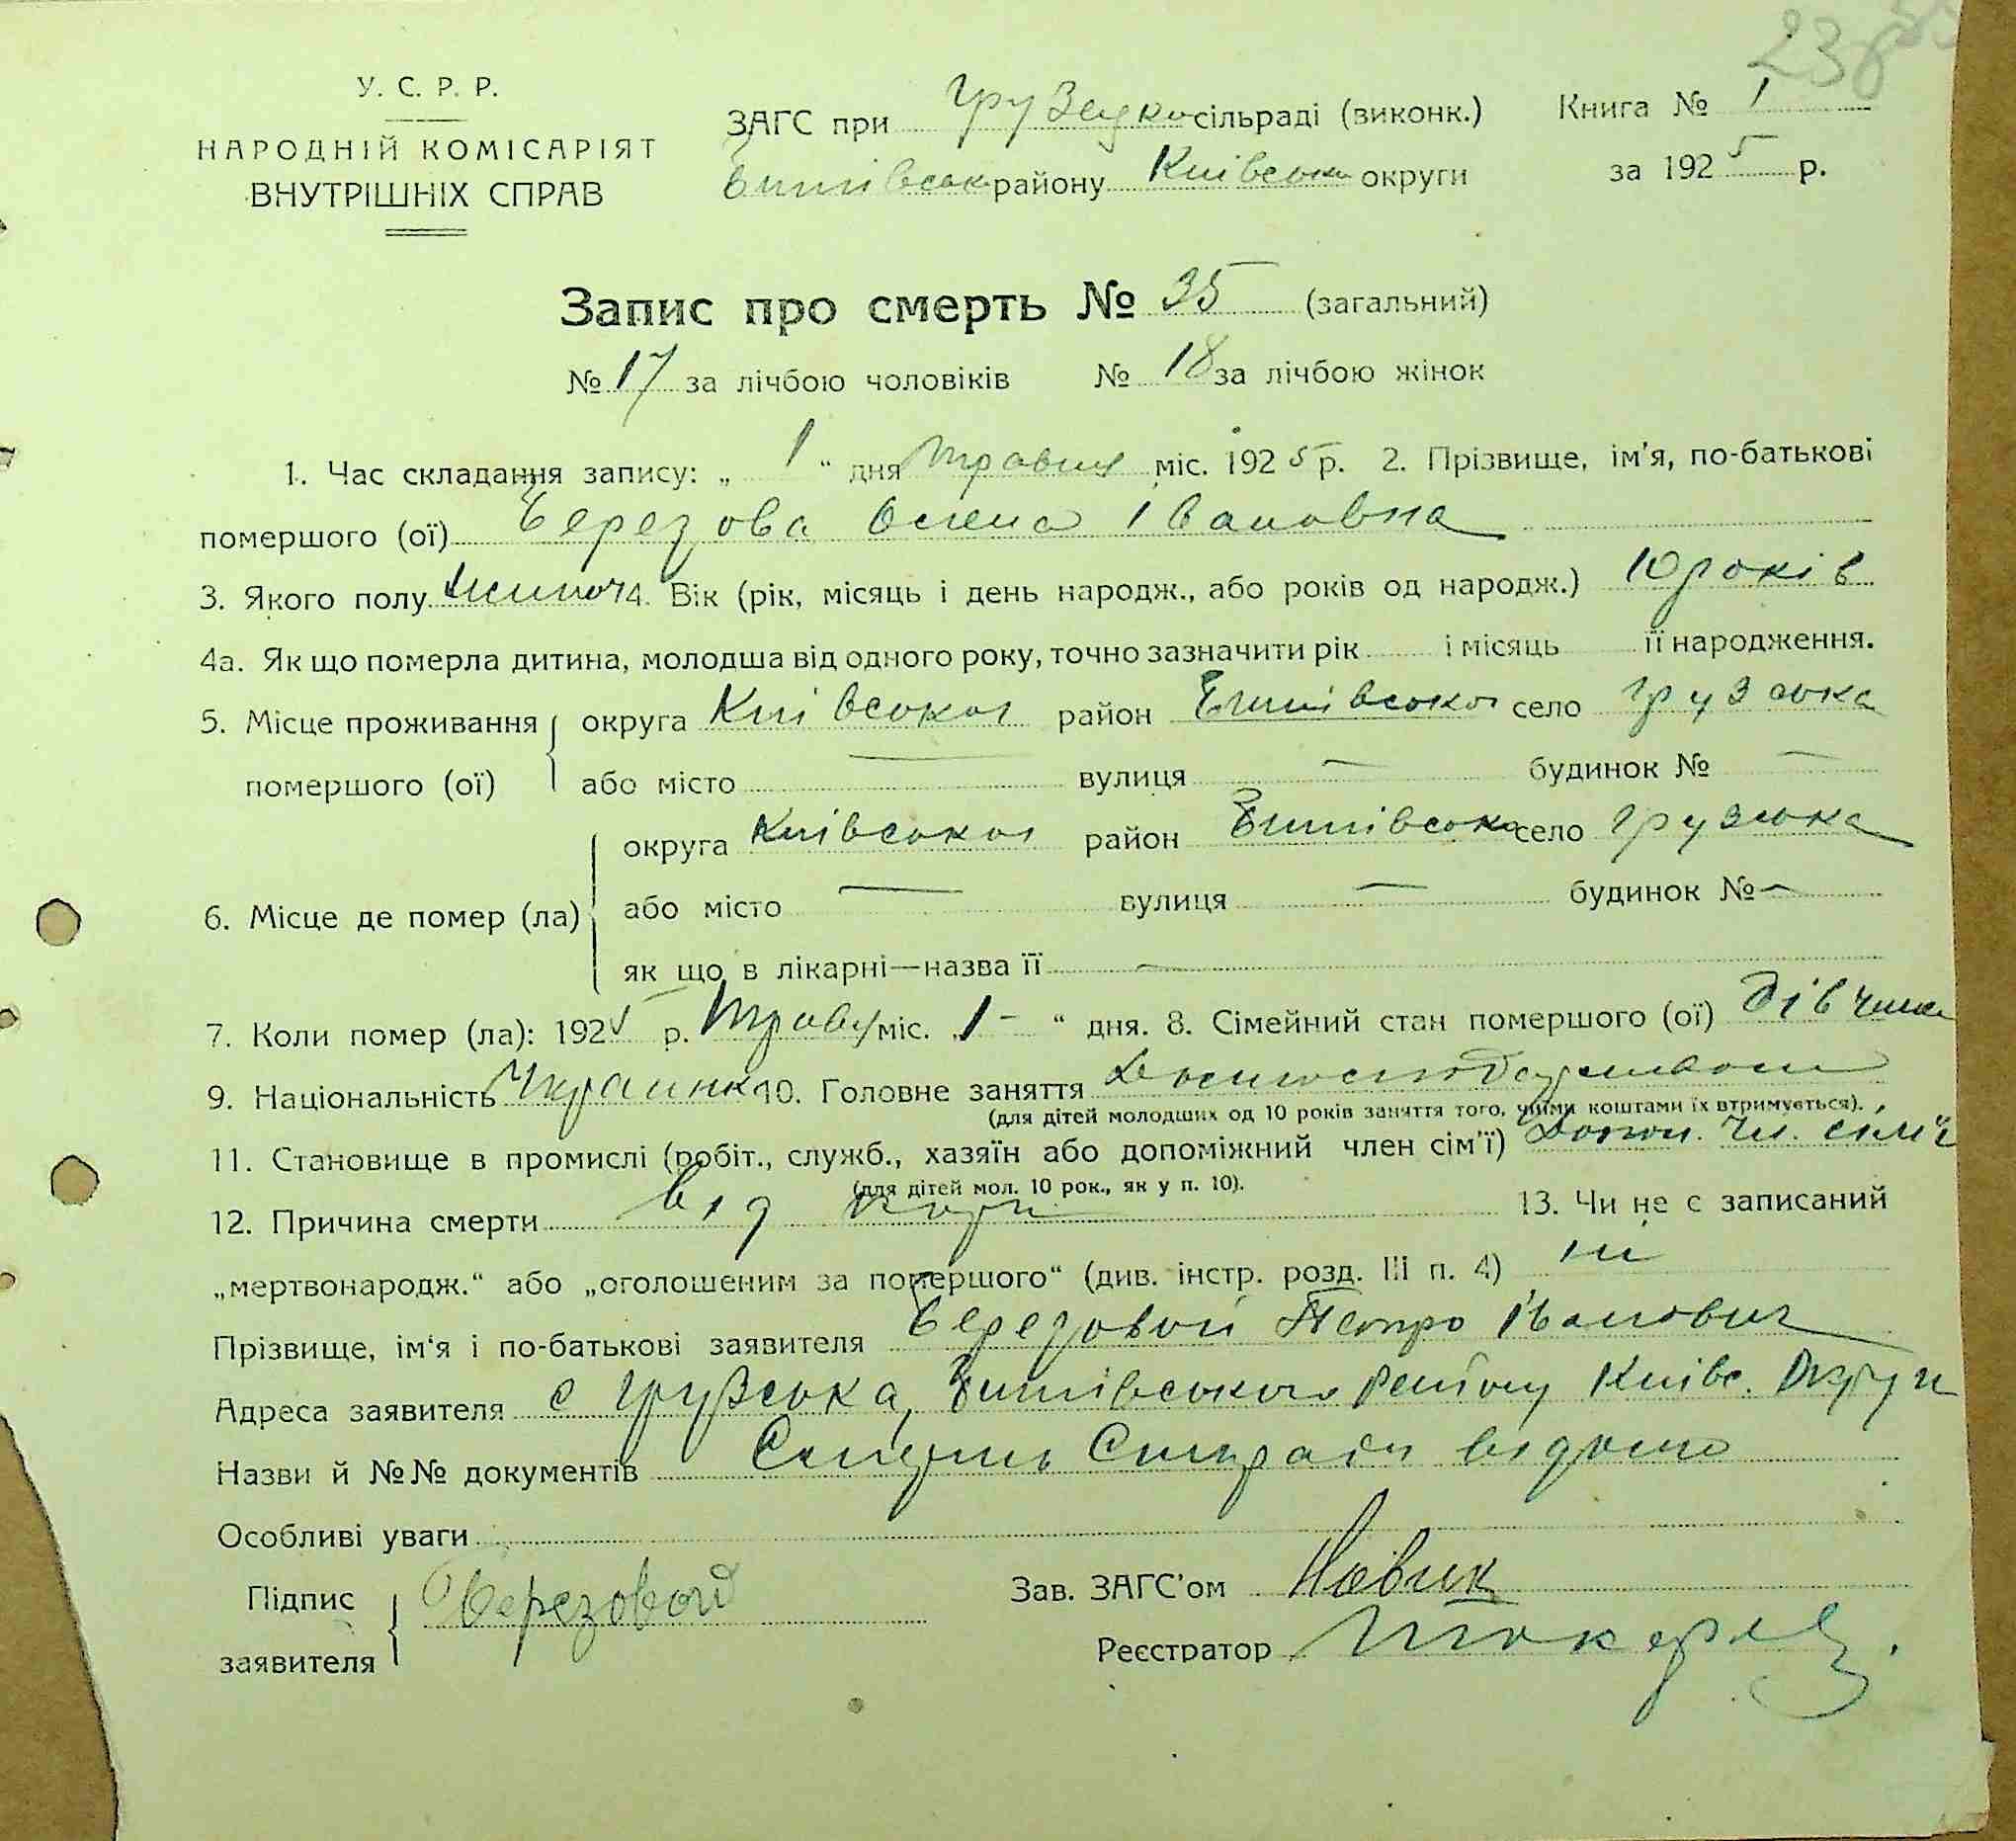 238
У. С. Р. Р.
НАРОДНІЙ КОМІСАРІЯТ
ВНУТРІШНІХ СПРАВ
ЗАГС при Грузецко сільраді (виконк.)
Бишівськ району Київськ округи
Книга № 1
за 1925 р.
Запис про смерть № 35 (загальний)
№ 17 за лічбою чоловіків № 18 за лічбою жінок
1. Час складання запису: „ 1 “ дня травня міс. 1925 р. 2. Прізвище, ім'я, по-батькові
помершого (ої) Березова Олена Івановна
3. Якого полу жиноч 4. Вік (рік, місяць і день народж., або років од народж.) 10 років
4а. Як що померла дитина, молодша від одного року, точно зазначити рік і місяць її народження.
5. Місце проживання округа Київської район Бишівської село Грузська
помершого (ої) або місто — вулиця — будинок № —
округа Київської район Бишівсько село Грузська
6. Місце де помер (ла) або місто — вулиця — будинок № —
як що в лікарні—назва її —
7. Коли помер (ла): 1925 р. Травн міс. „1 “ дня. 8. Сімейний стан помершого (ої) дівчина
9. Національність Украинка 10. Головне заняття
(для дітей молодших од 10 років заняття того, чиїми коштами їх втримується).
11. Становище в промислі (робіт., служб., хазяїн або допоміжний член сім'ї) Допом. чл. сім'ї
(для дітей мол. 10 рок., як у п. 10).
12. Причина смерти від кори 13. Чи не є записаний
„мертвонародж.“ або „оголошеним за помершого“ (див. інстр. розд. III п. 4) ні
Прізвище, ім'я і по-батькові заявителя Березовой Петро Іванович
Адреса заявителя с Грузська, Бишівського Району Київс. Округи
Назви й №№ документів Сільраді відомо
Особливі уваги
Підпис Березовой Зав. ЗАГС'ом Новик
заявителя Реєстратор